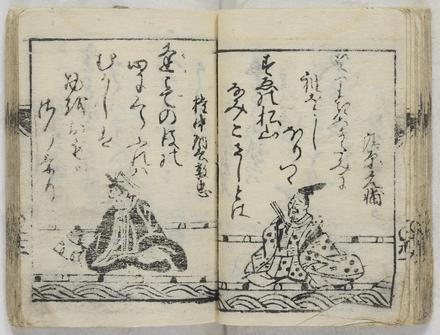 清原元輔
ちきりきなかたみに
袖をし
ほりつゝ
すゑの松山
なみこさしとは
権中納言敦忠
逢みての後の
心にくらふれは
むかしは
物をおも
はさりけり